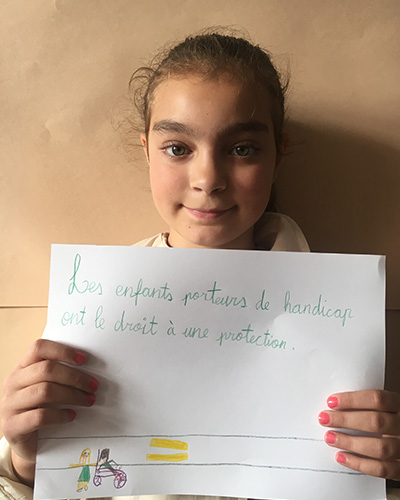 Les enfants porteurs de handicap
ont le droit à une protection.